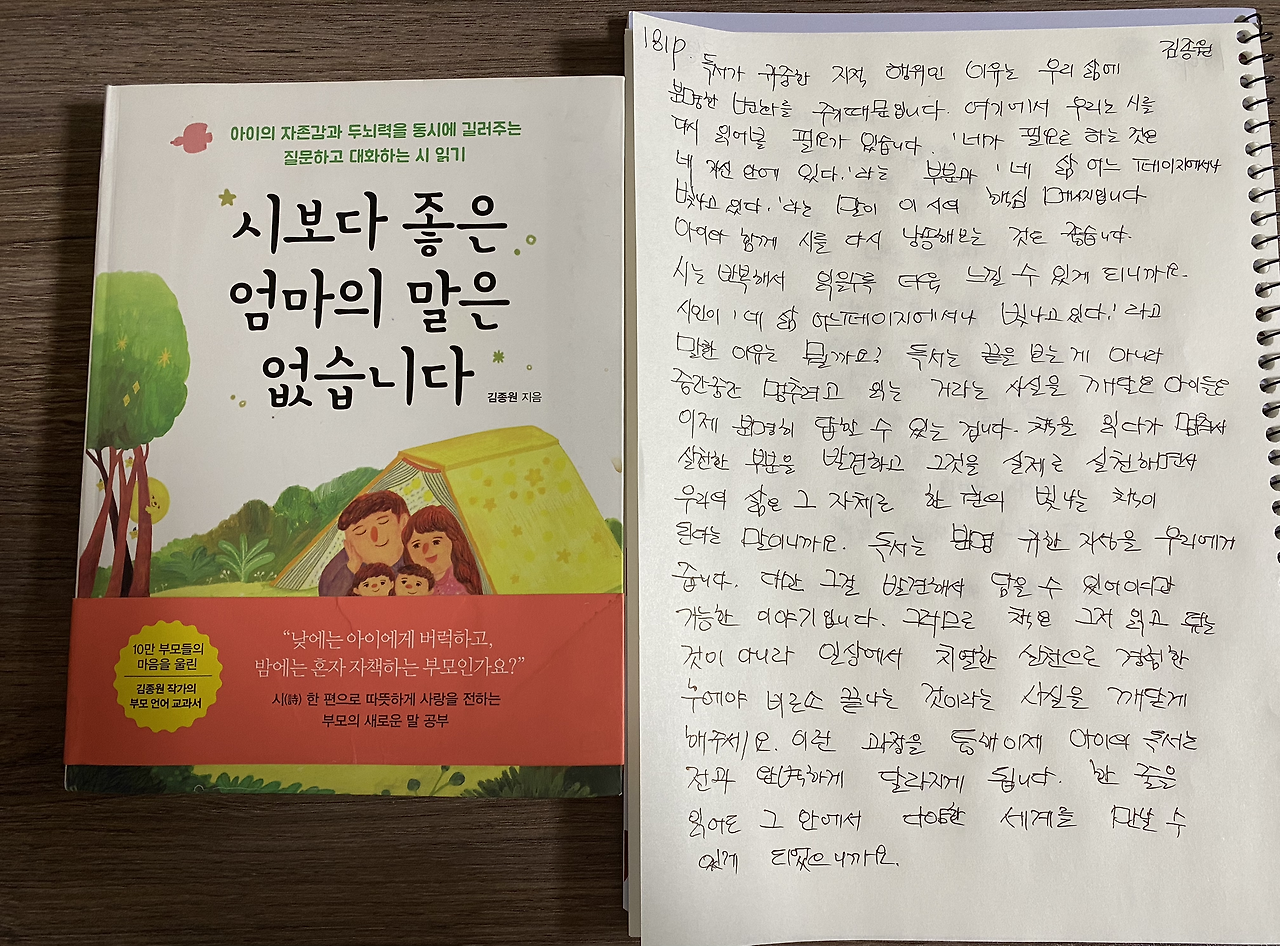 아이의 자존감과 두뇌력을 동시에 길러주는
질문하고 대화하는 시 읽기
시보다 좋은
엄마의 말은
없습니다
김종원 지음
10만 부모들의
마음을 울린
김종원 작가의
부모 언어 교과서
“낮에는 아이에게 버럭하고,
밤에는 혼자 자책하는 부모인가요?”
시(詩) 한 편으로 따뜻하게 사랑을 전하는
부모의 새로운 말 공부
181p. 김종원
독서가 귀중한 지적 행위인 이유는 우리 삶에
분명한 변화를 주기때문입니다. 여기에서 우리는 시를
다시 읽어볼 필요가 있습니다. '네가 필요로 하는 것은
네 자신 안에 있다.'라는 부분과 '네 삶 어느 페이지에서나
빛나고 있다.'라는 말이 이 시의 핵심 메시지입니다
아이와 함께 시를 다시 낭송해보는 것도 좋습니다.
시는 반복해서 읽을수록 더욱 느낄 수 있게 되니까요.
시인이 '네 삶 어느페이지에서나 빛나고 있다.'라고
말한 이유는 뭘까요? 독서는 끝을 보는 게 아니라
중간중간 멈추려고 읽는 거라는 사실을 깨달은 아이들은
이제 분명히 답할 수 있는 겁니다. 책을 읽다가 멈춰서
실천할 부분을 발견하고 그것을 실제로 실천하면서
우리의 삶은 그 자체로 한 권의 빛나는 책이
된다는 말이니까요. 독서는 분명 귀한 지성을 우리에게
줍니다. 다만 그걸 발견해서 담을 수 있어야만
가능한 이야기입니다. 그러므로 책은 그저 읽고 덮는
것이 아니라 일상에서 치열한 실천으로 경험한
후에야 비로소 끝나는 것이라는 사실을 깨닫게
해주세요. 이런 과정을 통해이제 아이의 독서는
전과 완벽하게 달라지게 됩니다. 한 줄을
읽어도 그 안에서 다양한 세계를 만날 수
있게 되었으니까요.